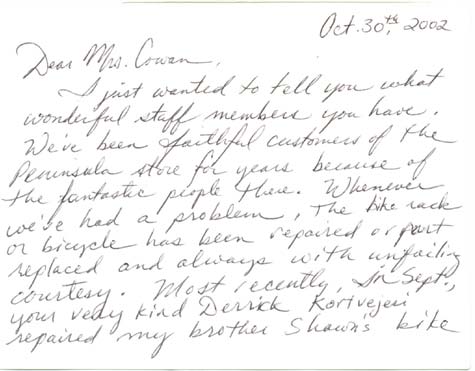 Oct. 30th, 2002
Dear Mrs. Cowan,
I just wanted to tell you what
wonderful staff members you have.
We've been faithful customers of the
Peninsula store for years because of
the fantastic people there. Whenever
we've had a problem, the bike rack
or bicycle has been repaired or part
replaced and always with unfailing
courtesy. Most recently, in Sept.,
your very kind Derrick Kortvejesi
repaired my brother Shawn's bike